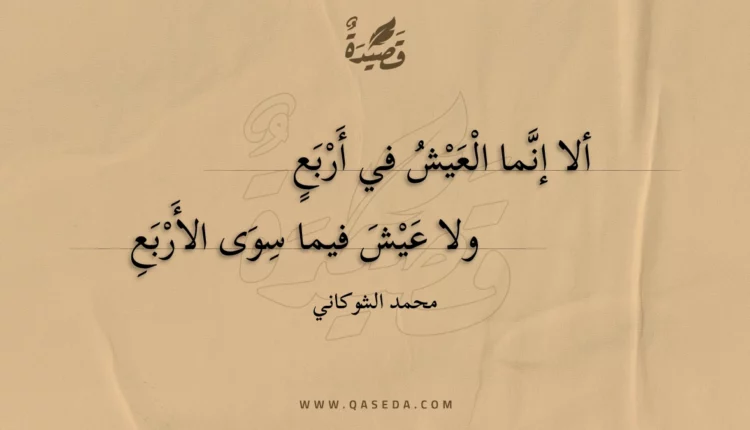 قَصِيدَةٌ
ألا إنَّما الْعَيْشُ في أَرْبَعٍ
ولا عَيْشَ فيما سِوَى الأَرْبَعِ
محمد الشوكاني
WWW.QASEDA.COM